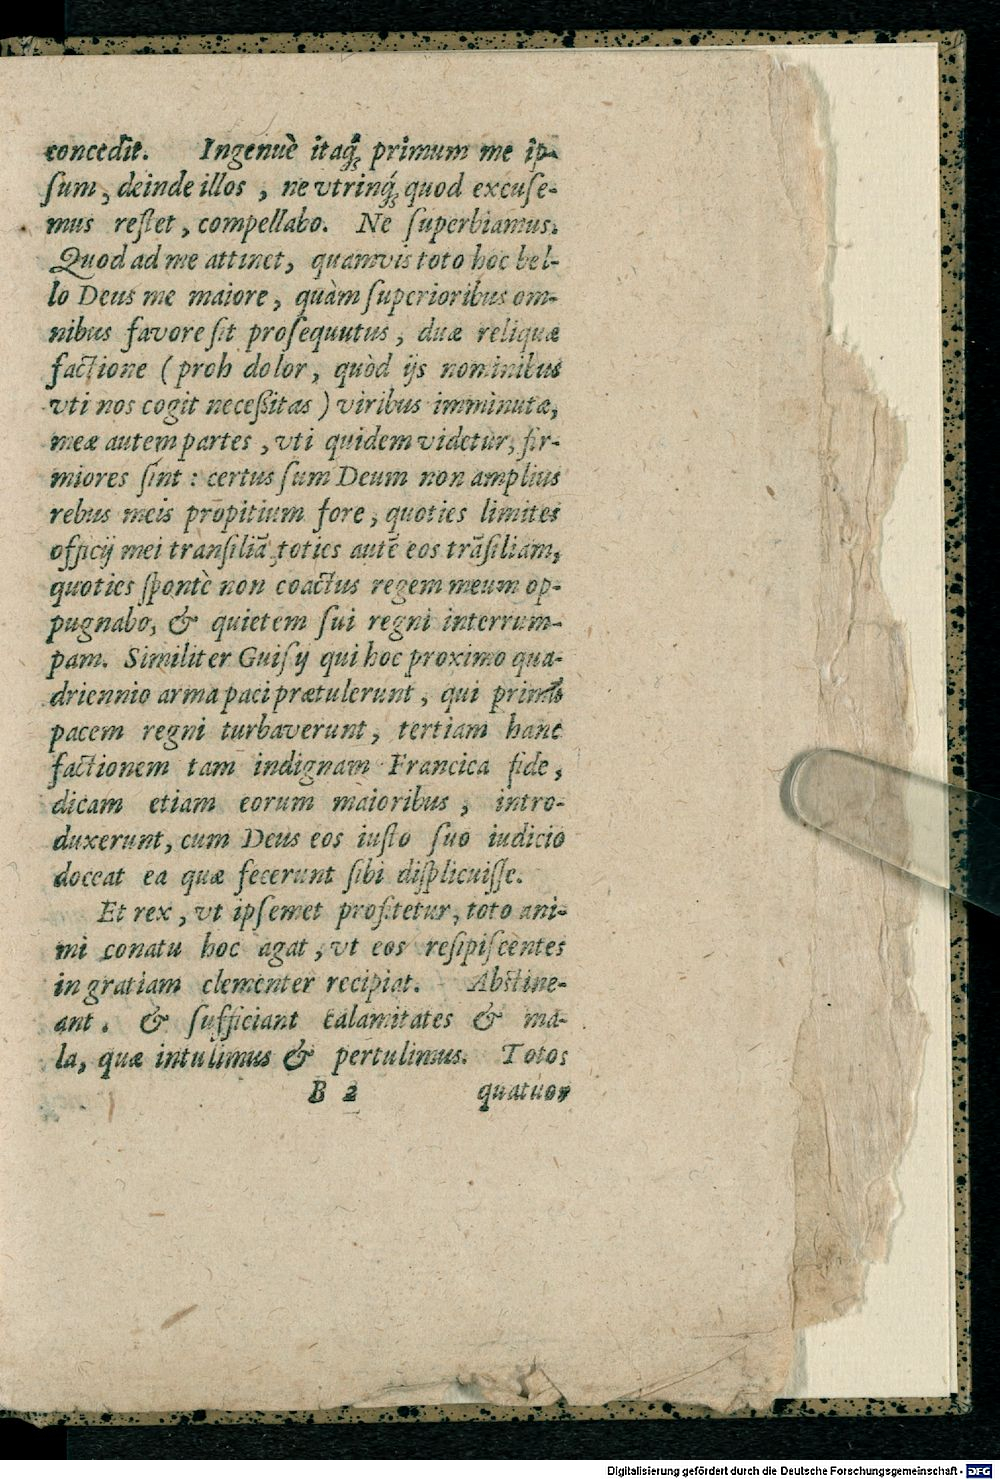 concedit. Ingenuè itaq́; primum me ip-
sum, deinde illos, ne vtrinq́; quod excuse-
mus restet, compellabo. Ne superbiamus.
Quod ad me attinet, quamvis toto hoc bel-
lo Deus me maiore, quàm superioribus om-
nibus favore sit prosequutus, duæ reliquæ
factione (proh dolor, quòd ijs nominibus
vti nos cogit necessitas) viribus imminutæ,
meæ autem partes, vti quidem videtur, fir-
miores sint: certus sum Deum non amplius
rebus meis propitium fore, quoties limites
officij mei transiliā, toties autē eos trāsiliam,
quoties spontè non coactus regem meum op-
pugnabo, & quietem sui regni interrum-
pam. Similiter Guisij qui hoc proximo qua-
driennio arma paci prætulerunt, qui primi
pacem regni turbaverunt, tertiam hanc
factionem tam indignam Francica fide,
dicam etiam eorum maioribus, intro-
duxerunt, cum Deus eos iusto suo iudicio
doceat ea quæ fecerunt sibi displicuisse.
Et rex, vt ipsemet profitetur, toto ani-
mi conatu hoc agat, vt eos resipiscentes
in gratiam clementer recipiat. Abstine-
ant. & sufficiant calamitates & ma-
la, quæ intulimus & pertulimus. Totos
B 2 quatuor
Digitalisierung gefördert durch die Deutsche Forschungsgemeinschaft - DFG